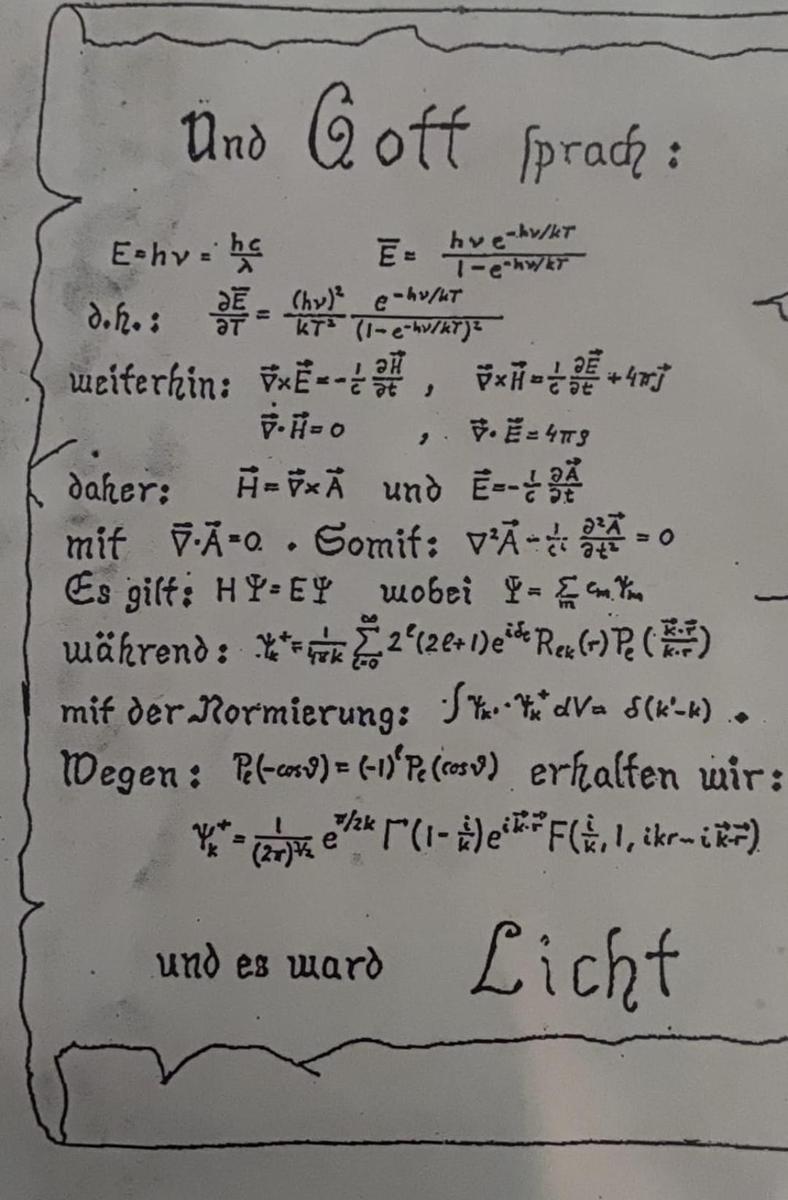 Und Gott sprach:
E=hν = hc/λ   Ē = hν e^(-hν/kT) / (1-e^(-hν/kT))
d.h.: ∂Ē/∂T = (hν)²/kT² e^(-hν/kT)/(1-e^(-hν/kT))²
weiterhin: ∇⃗×E⃗=-1/c ∂H⃗/∂t , ∇⃗×H⃗=1/c ∂E⃗/∂t +4πj⃗
∇⃗·H⃗=0 , ∇⃗·E⃗=4πρ
daher: H⃗=∇⃗×A⃗ und E⃗=-1/c ∂A⃗/∂t
mit ∇⃗·A⃗=0. Somit: ∇²A⃗ - 1/c² ∂²A⃗/∂t² = 0
Es gilt: HΨ=EΨ wobei Ψ= Σ_m c_m Ψ_m
während: Ψ_k^+ = 1/4πk Σ_(l=0)^∞ 2^l (2l+1)e^(iδ_l) R_lk(r) P_l (k⃗·r⃗/k·r)
mit der Normierung: ∫Ψ_k'·Ψ_k^+ dV= δ(k'-k) .
Wegen: P_l(-cosϑ) = (-1)^l P_l(cosϑ) erhalten wir:
Ψ_k^+ = 1/(2π)^(3/2) e^(π/2k) Γ(1-i/k)e^(ik⃗·r⃗) F(i/k, 1, ikr-ik⃗·r⃗)
und es ward Licht